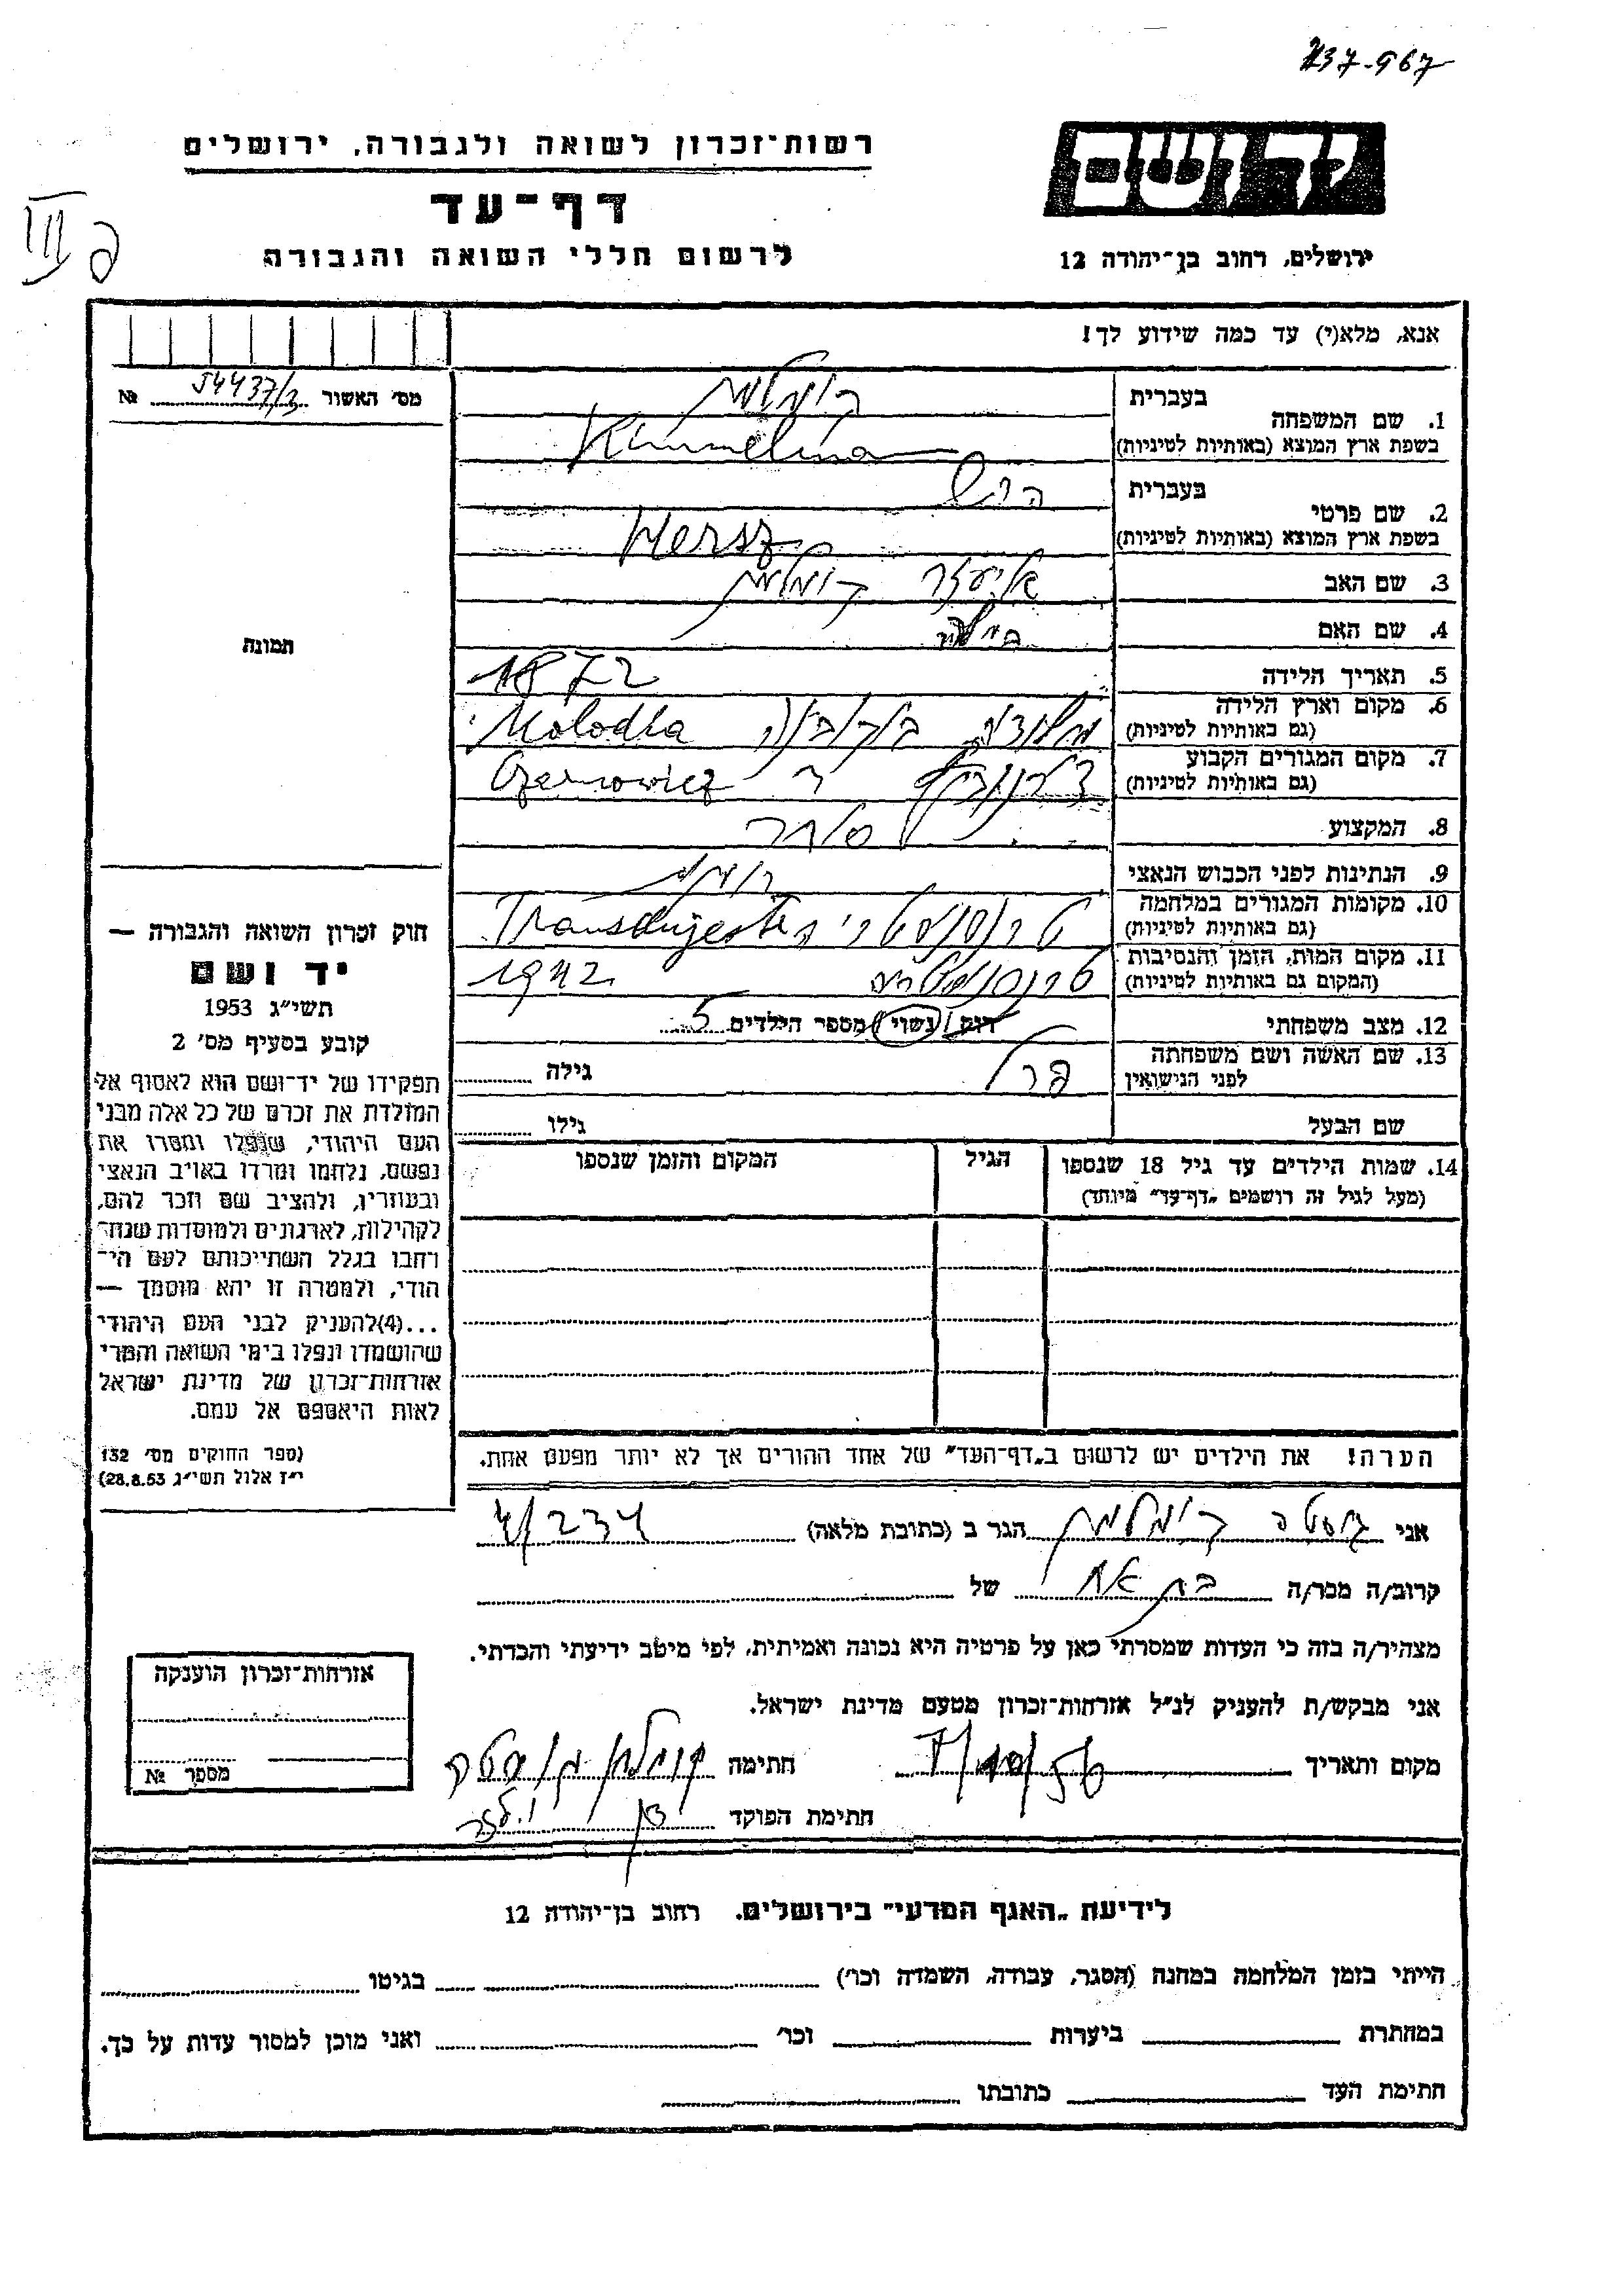 237-967
יד ושם
רשות־זכרון לשואה ולגבורה, ירושלים
דף־עד
לרשום חללי השואה והגבורה
ירושלים, רחוב בן־יהודה 12
פ III
אנא, מלא(י) עד כמה שידוע לך!
מס׳ האשור 54437/3 №
תמונה
1. שם המשפחה
בעברית קימלמן
בשפת ארץ המוצא (באותיות לטיניות) Kimmelman
2. שם פרטי
בעברית הרש
בשפת ארץ המוצא (באותיות לטיניות) Hersz
3. שם האב אליעזר קימלמן
4. שם האם
5. תאריך הלידה 1872
6. מקום וארץ הלידה
(גם באותיות לטיניות) בוקובינה Molodia
7. מקום המגורים הקבוע
(גם באותיות לטיניות) צ'רנוביץ Czernowicz
8. המקצוע סוחר
9. הנתינות לפני הכבוש הנאצי רומני
10. מקומות המגורים במלחמה
(גם באותיות לטיניות) טרנסניסטריה
11. מקום המות, הזמן והנסיבות
(המקום גם באותיות לטיניות) טרנסניסטריה 1942
12. מצב משפחתי רווק / נשוי / מספר הילדים 5
13. שם האשה ושם משפחתה
לפני הנישואין פרל גילה
שם הבעל גילו
14. שמות הילדים עד גיל 18 שנספו הגיל המקום והזמן שנספו
(מעל לגיל זה רושמים „דף־עד״ מיוחד)
הערה! את הילדים יש לרשום ב„דף־העד״ של אחד ההורים אך לא יותר מפעם אחת.
חוק זכרון השואה והגבורה —
יד ושם
תשי״ג 1953
קובע בסעיף מס׳ 2
תפקידו של יד־ושם הוא לאסוף אל
המולדת את זכרם של כל אלה מבני
העם היהודי, שנפלו ומסרו את
נפשם, נלחמו ומרדו באויב הנאצי
ובעוזריו, ולהציב שם וזכר להם,
לקהילות, לארגונים ולמוסדות שנח־
רבו בגלל השתייכותם לעם הי־
הודי, ולמטרה זו יהא מוסמך —
...(4)להעניק לבני העם היהודי
שהושמדו ונפלו בימי השואה והמרי
אזרחות־זכרון של מדינת ישראל
לאות היאספם אל עמם.
(ספר החוקים מס׳ 132
י״ז אלול תשי״ג 28.8.53)
אני גוסטה קימלמן הגר ב (כתובת מלאה)
קרוב/ה מכר/ה בת אח של
מצהיר/ה בזה כי העדות שמסרתי כאן על פרטיה היא נכונה ואמיתית, לפי מיטב ידיעתי והכרתי.
אני מבקש/ת להעניק לנ״ל אזרחות־זכרון מטעם מדינת ישראל.
מקום ותאריך חתימה קימלמן גוסטה
חתימת הפוקד
אזרחות־זכרון הוענקה
מספר №
לידיעת „האגף המדעי״ בירושלים, רחוב בן־יהודה 12
הייתי בזמן המלחמה במחנה (הסגר, עבודה, השמדה וכו׳) בגיטו
במחתרת ביערות וכו׳ ואני מוכן למסור עדות על כך.
חתימת העד כתובתו